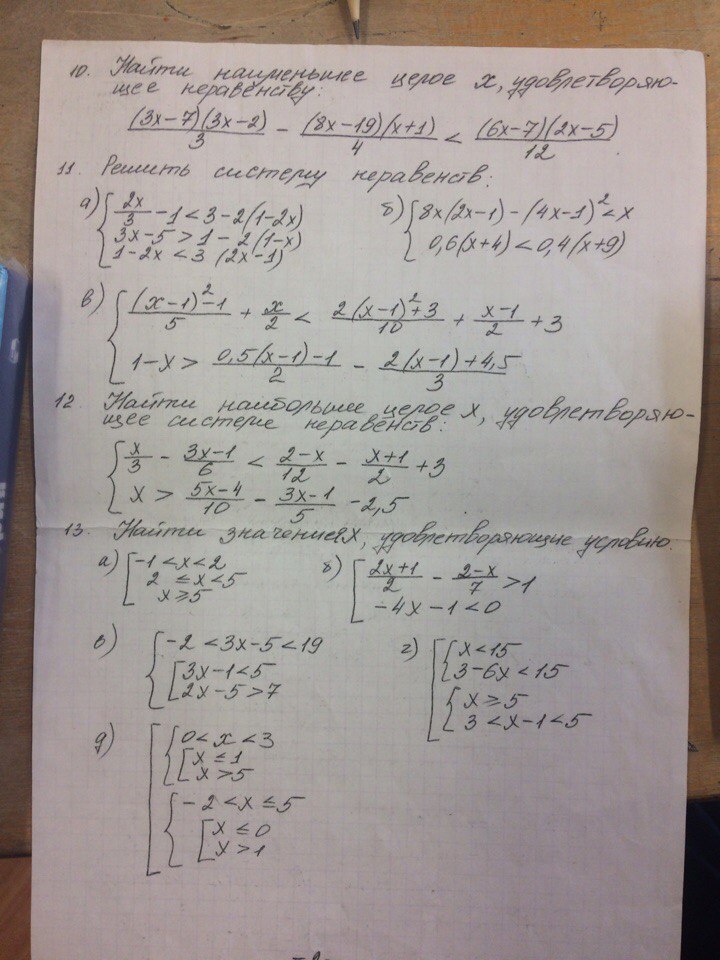 10. Найти наименьшее целое x, удовлетворяю-
щее неравенству:
(3x-7)(3x-2)/3 - (8x-19)(x+1)/4 < (6x-7)(2x-5)/12.
11. Решить систему неравенств:
а) { 2x/3 - 1 < 3 - 2(1-2x)
3x-5 > 1 - 2(1-x)
1-2x < 3(2x-1)
б) { 8x(2x-1) - (4x-1)² < x
0,6(x+4) < 0,4(x+9)
в) { (x-1)²-1/5 + x/2 < 2(x-1)²+3/10 + x-1/2 + 3
1-x > 0,5(x-1)-1/2 - 2(x-1)+4,5/3
12 Найти наибольшее целое x, удовлетворяю-
щее системе неравенств:
{ x/3 - 3x-1/6 < 2-x/12 - x+1/2 + 3
x > 5x-4/10 - 3x-1/5 - 2,5
13. Найти значения x, удовлетворяющие условию.
а) [ -1 < x < 2
2 ≤ x < 5
x ≥ 5
б) [ 2x+1/2 - 2-x/7 > 1
-4x-1 < 0
в) { -2 < 3x-5 < 19
[ 3x-1 < 5
2x-5 > 7
г) [ { x < 15
3-6x < 15
{ x ≥ 5
3 < x-1 < 5
д) [ { 0 < x < 3
[ x ≤ 1
x > 5
{ -2 < x ≤ 5
[ x ≤ 0
x > 1
-2-